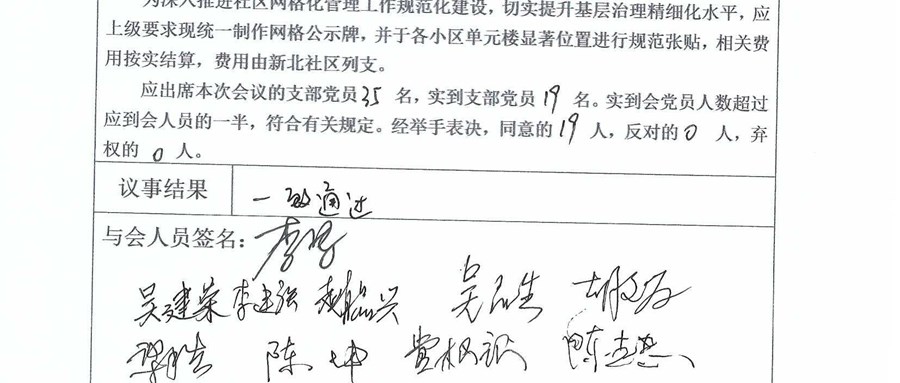 为深入推进社区网格化管理工作规范化建设，切实提升基层治理精细化水平，应
上级要求现统一制作网格公示牌，并于各小区单元楼显著位置进行规范张贴，相关费
用按实结算，费用由新北社区列支。
应出席本次会议的支部党员35名，实到支部党员19名。实到会党员人数超过
应到会人员的一半，符合有关规定。经举手表决，同意的19人，反对的0人，弃
权的0人。
议事结果 一致通过
与会人员签名：
吴建荣 李建强
陈坤